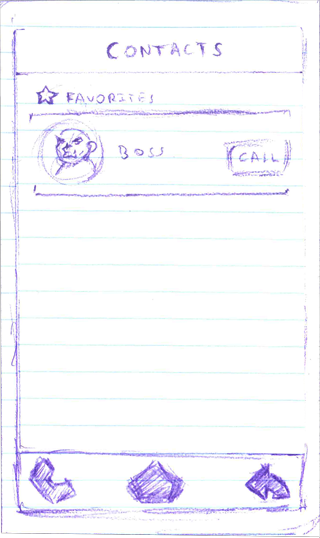 CONTACTS
FAVORITES
BOSS
CALL